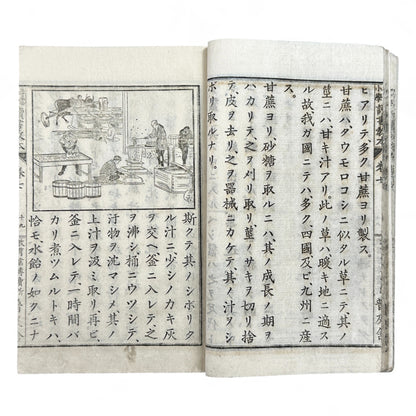 ヒアリテ多ク甘蔗ヨリ製ス。
甘蔗ハタウモロコシニ似タル草ニテ、其ノ
莖ニハ、甘キ汁アリ。此ノ草ハ暖キ地ニ適ス
ル故、我ガ國ニテハ多ク四國及ビ九州ニ産
ス。
甘蔗ヨリ、砂糖ヲ取ルニハ、其ノ成長ノ期ヲ
ハカリテ、之ヲ刈リ取リ、莖ノサキヲ切リ捨
テ、皮ヲ去リ、之ヲ器械ニカケテ、其ノ汁ヲシ
ボリ取ルナリ。
斯クテ其ノシボリタ
ル汁ニ少シノカキ灰
ヲ交ヘ、釜ニ入レテ之
ヲ沸シ、桶ニウツシテ、
汚物ヲ沈マシメ、其ノ
上汁ヲ汲ミ取リ、再ビ、
釜ニ入レテ、一時間バ
カリ煮ツムルトキハ、
恰モ水飴ノ如クニナ
卷七